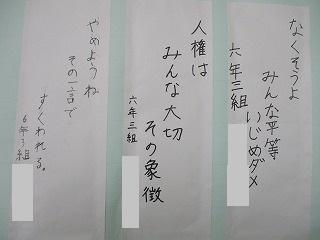 なくそうよ
みんな平等
いじめダメ
六年三組
人権は
みんな大切
その象徴
六年三組
やめようね
その一言で
すくわれる。
6年3組